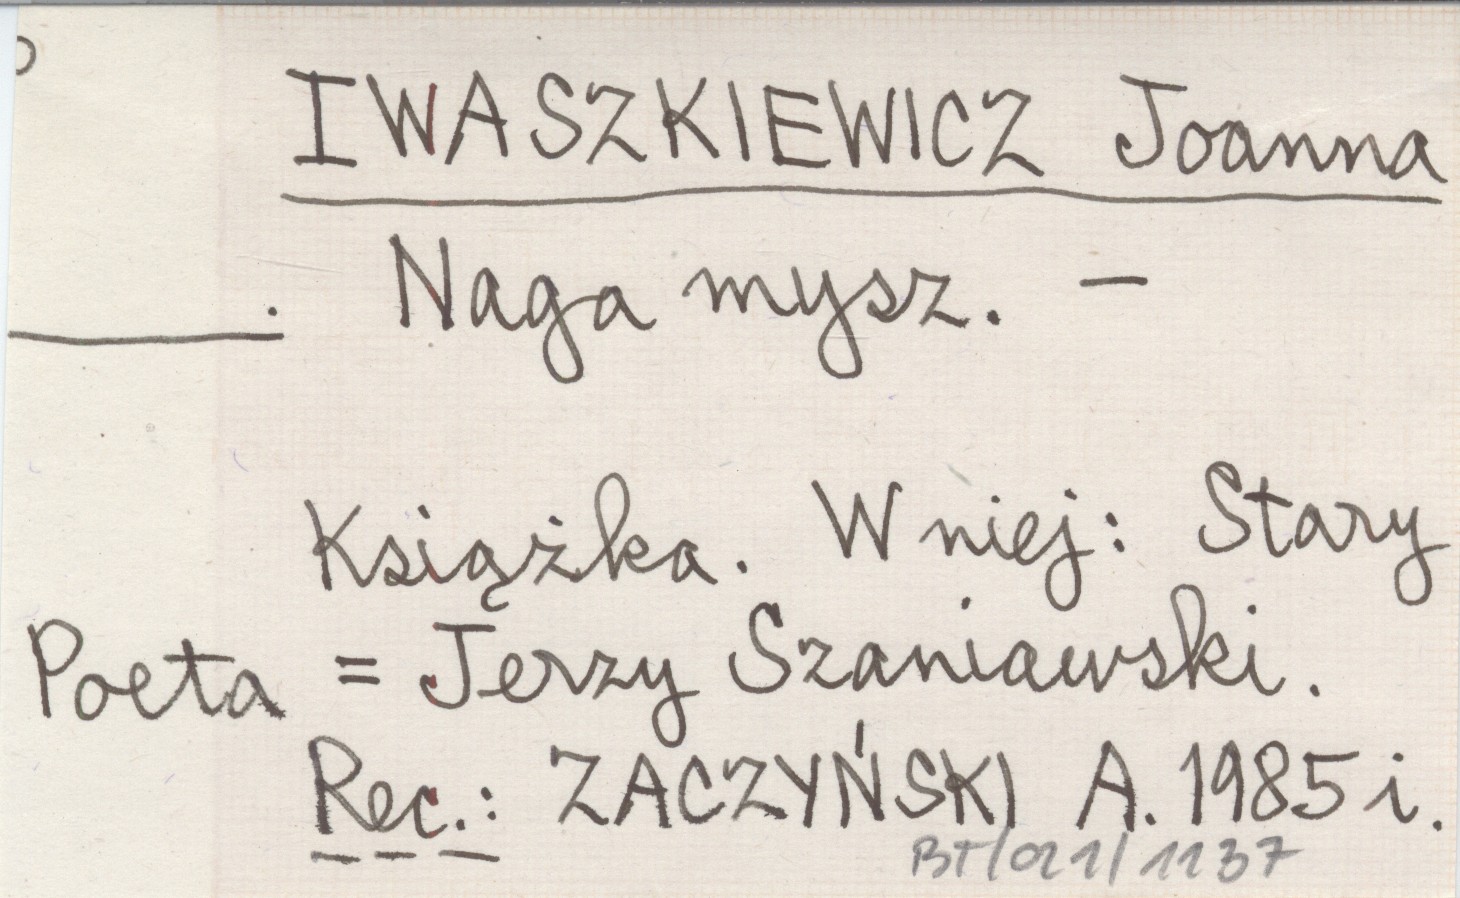 IWASZKIEWICZ Joanna
Naga mysz. —
Książka. W niej: Stary
Poeta = Jerzy Szaniawski.
Rec.: ZACZYŃSKI A. 1985 i.
BT/021/1137